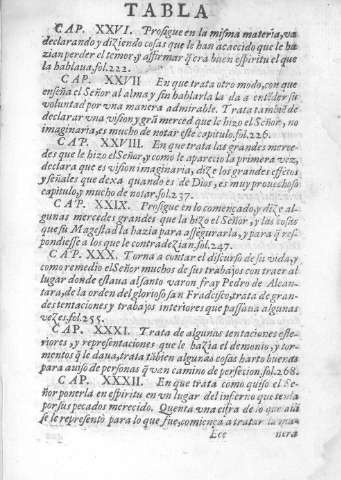 TABLA
CAP. XXVI. Prosigue en la misma materia, va
declarando y diziendo cosas que le han acaecido que le ha
zian perder el temor, y affirmar q̃ era buen espiritu el que
la hablaua. fol. 222.
CAP. XXVII En que trata otro modo, con que
enseña el Señor al alma y sin hablarla la da a entẽder su
voluntad por vna manera admirable. Trata tambiẽ de
declarar vna vision y grã merced que le hizo el Señor, no
imaginaria, es mucho de notar este capitulo. fol. 226.
CAP. XXVIII. En que trata las grandes merce
des que le hizo el Señor, y como le aparecio la primera vez,
declara que es vision imaginaria, dize los grandes effetos
y señales que dexa quando es de Dios, es muy prouechoso
capitulo, y mucho de notar. fol. 237.
CAP. XXIX. Prosigue en lo començado, y dize al-
gunas mercedes grandes que la hizo el Señor, y las cosas
que su Magestad la hazia para assegurarla, y para q̃ res-
pondiesse a los que le contradezian. fol. 247.
CAP. XXX. Torna a contar el discurso de su vida, y
como remedio el Señor muchos de sus trabajos con traer al
lugar donde estaua al santo varon fray Pedro de Alcan-
tara, de la orden del glorioso san Frãcisco, trata de gran-
des tentaciones y trabajos interiores que passaua algunas
vezes. fol. 255.
CAP. XXXI. Trata de algunas tentaciones este-
riores, y representaciones que le hazia el demonio, y tor-
mentos q̃ le daua, trata tãbien algunas cosas harto buenas
para auiso de personas q̃ van camino de perfecion. fol. 268.
CAP. XXXII. En que trata como quiso el Se-
ñor ponerla en espiritu en vn lugar del infierno que tenia
por sus pecados merecido. Quenta vna cifra de lo que alli
se le representò para lo que fue, comiença a tratar la ma-
Eee nera